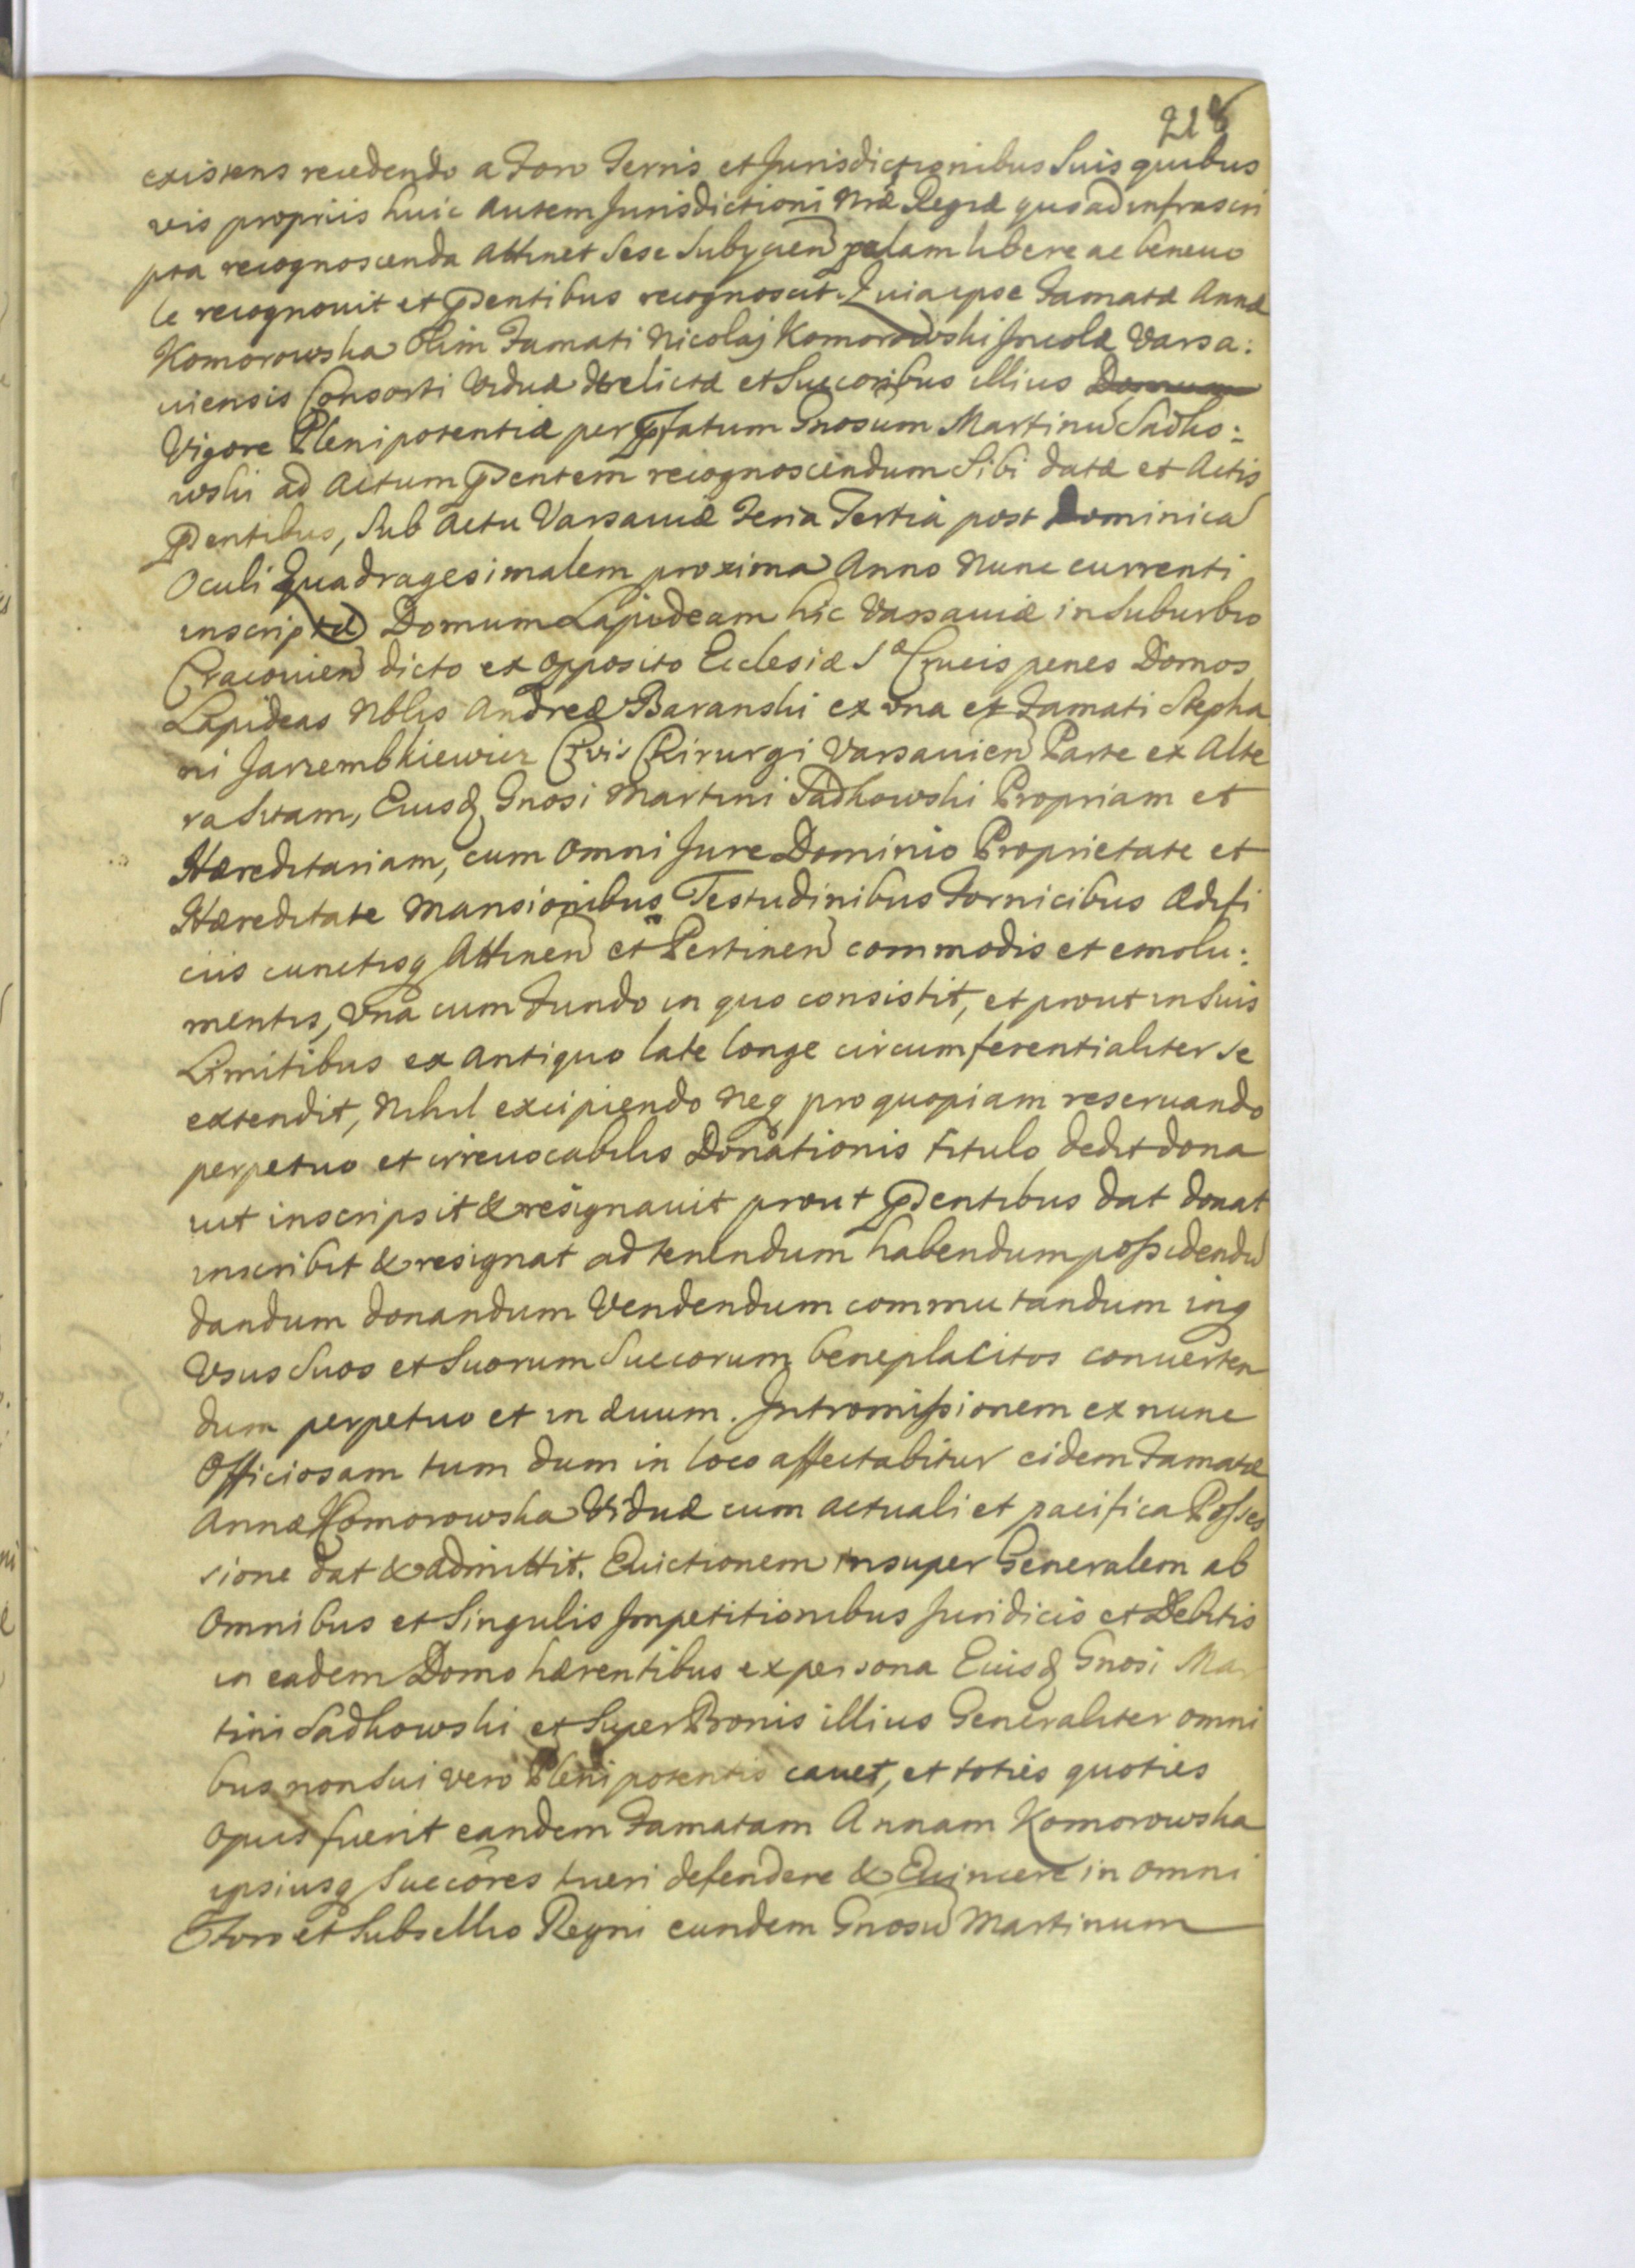 218
existens recedendo a Foro Terris et Jurisdictionibus Suis quibus
vis propriis huic autem Jurisdictioni Nræ Regiæ quoad infrascri
pta recognoscenda Attinet Sese Subycieñ palam libere ac beneuo
le recognouit et Pñentibus recognoscit. Quia ipse Famatæ Annæ
Komorowska Olim Famati Nicolaj Komorowski Incolæ Varsa:
uiensis Consorti Viduæ derelictæ et Succoribus illius Domum
Vigore Plenipotentiæ per Pfatum Gnosum Martinũ Sadko:
wski ad Actum Pñentem recognoscendum Sibi datæ et Actis
Pñentibus, Sub Actu Varsauiæ Feria Tertia post Dominicã
Oculi Quadragesimalem proxima Anno Nunc currenti
inscriptæ Domum Lapideam hic Varsauiæ in Suburbio
Cracouieñ dicto ex opposito Ecclesiæ Sᵃ Crucis penes Domos
Lapideas Nblis Andreæ Baranski ex vna et Famati Stepha
ni Jarzembkiewicz Civis Chirurgi Varsauieñ Parte ex Alte
ra Sitam, Eiusq Gnosi Martini Sadkowski Propriam et
Hæreditariam, cum omni Jure Dominio Proprietate et
Hæreditate Mansionibus Testudinibus Fornicibus Ædifi
ciis cunctisq Attineñ et Pertineñ commodis et emolu:
mentis, Vna cum Fundo in quo consistit, et prout in Suis
Limitibus ex Antiquo late longe circumferentialiter se
extendit, Nihil excipiendo Neq pro quopiam reseruando
perpetuo et irreuocabilis Donationis titulo dedit dona
uit inscripsit & resignauit prout Pñentibus dat donat
inscribit & resignat ad tenendum habendum possidendũ
dandum donandum Vendendum commutandum inq
Vsus Suos et Suorum Succorum beneplacitos conuerten
dum perpetuo et in æuum. Intromissionem ex nunc
Officiosam tum dum in loco affectabitur eidem Famatæ
Annæ Komorowska Viduæ cum actuali et pacifica Posses
sione dat & admittit. Euictionem insuper Generalem ab
Omnibus et Singulis Impetitionibus Juridicis et Debitis
in eadem Domo hærentibus ex persona Eiusq Gnosi Mar
tini Sadkowski et Super Bonis illius Generaliter omni
bus non Sui vero Plenipotentis cauet, et toties quoties
opus fuerit eandem Famatam Annam Komorowska
ipsiusq Succõres tueri defendere & Euincere in omni
Foro et Subsellio Regni eundem Gnosũ Martinum